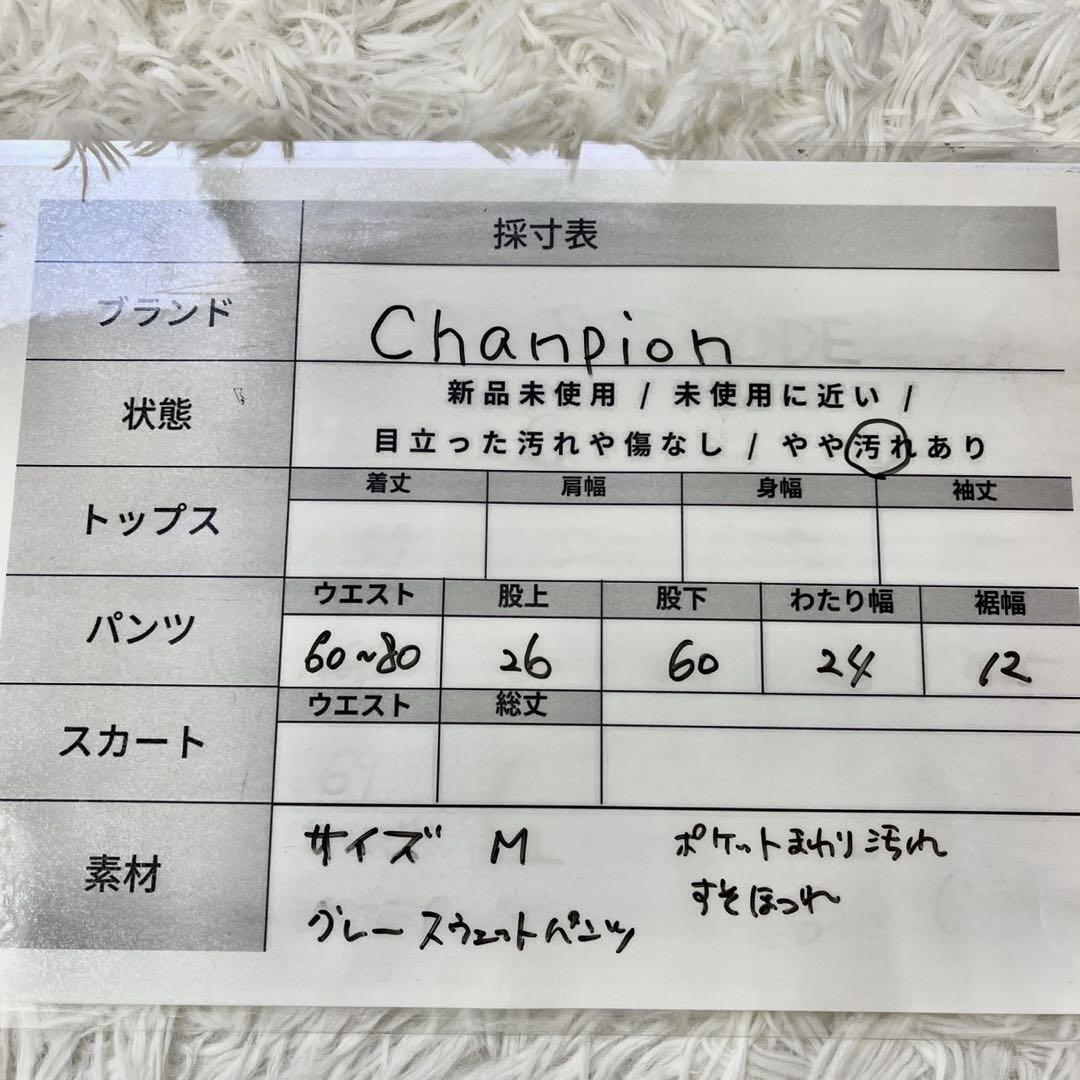 採寸表
ブランド
Chanpion
状態
新品未使用 / 未使用に近い /
目立った汚れや傷なし / やや汚れあり
トップス
着丈 肩幅 身幅 袖丈
パンツ
ウエスト 股上 股下 わたり幅 裾幅
60~80 26 60 24 12
スカート
ウエスト 総丈
素材
サイズ M
グレースウェットパンツ
ポケットまわり汚れ
すそほつれ